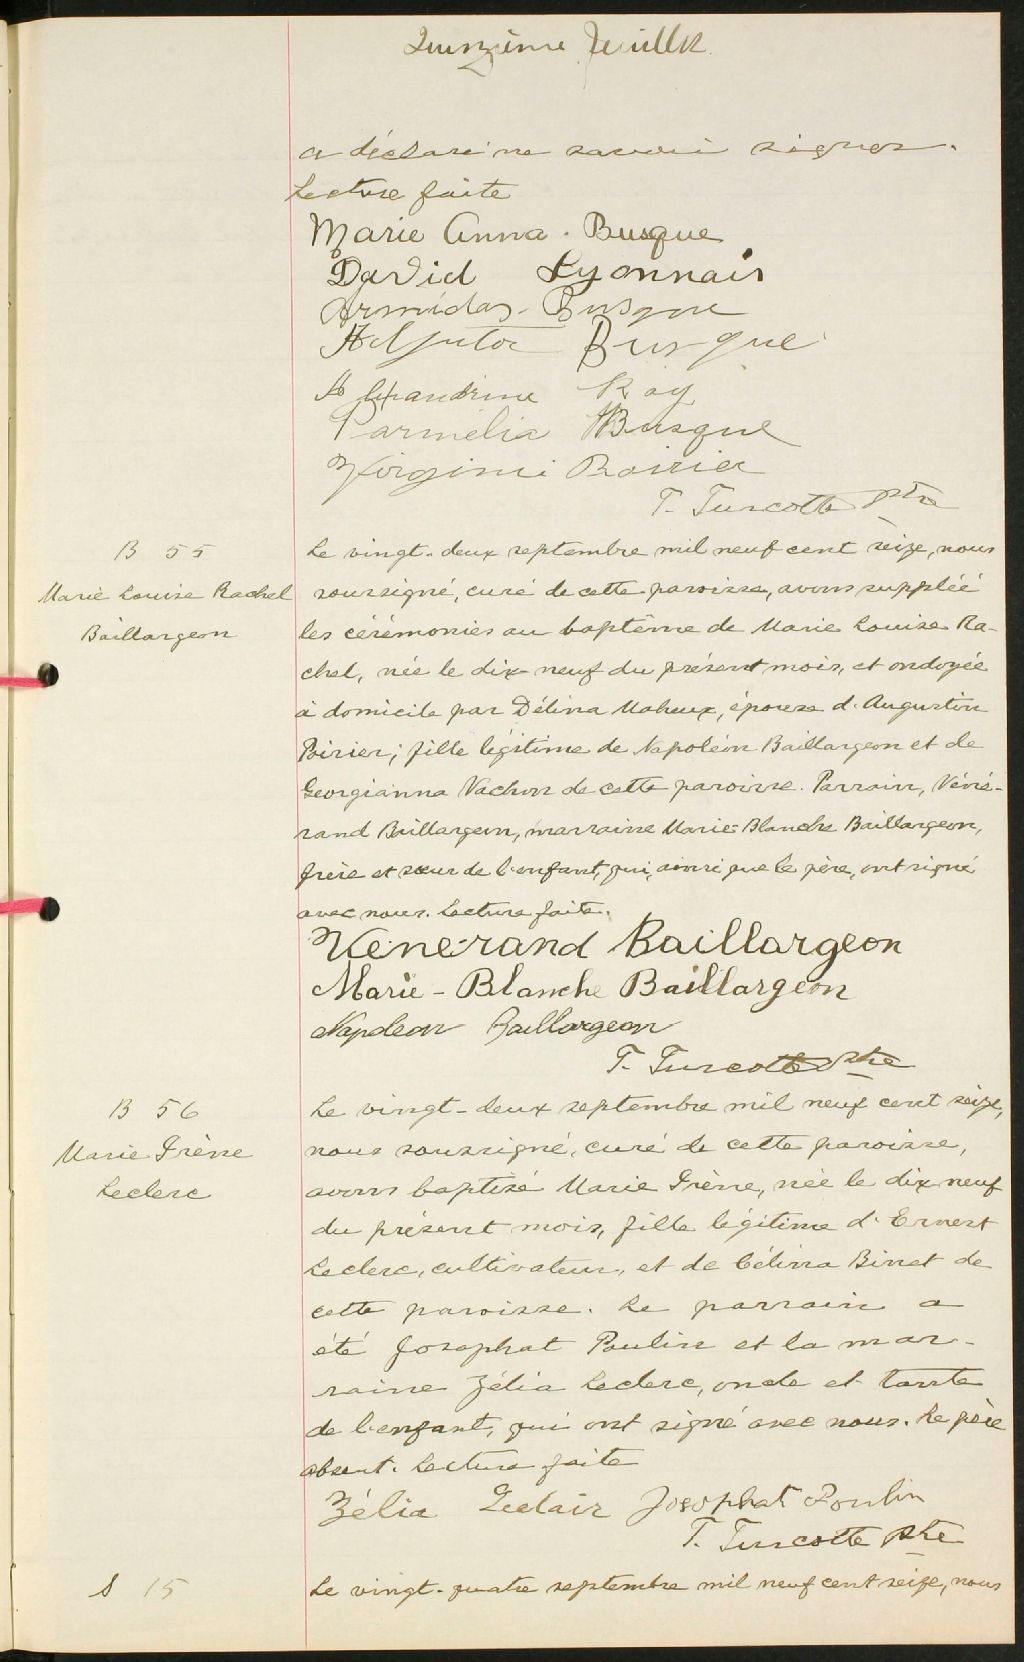 Quinzième feuillet
a déclaré ne savoir signer.
Lecture faite
Marie Anna. Busque
David Lyonnais
Armidas. Busque
Adjutor Busque
Alexandrine Roy
Parmélia Busque
Virginie Poirier
T. Turcotte Ptre
B 55
Marie Louise Rachel
Baillargeon
Le vingt-deux septembre mil neuf cent seize, nous
soussigné, curé de cette paroisse, avons suppléé
les cérémonies au baptême de Marie Louise Ra-
chel, née le dix-neuf du présent mois, et ondoyée
à domicile par Délina Maheux, épouse d'Augustin
Poirier; fille légitime de Napoléon Baillargeon et de
Georgianna Vachon de cette paroisse. Parrain, Véné-
rand Baillargeon, marraine Marie-Blanche Baillargeon,
frère et sœur de l'enfant, qui, ainsi que le père, ont signé
avec nous. Lecture faite.
Vénérand Baillargeon
Marie-Blanche Baillargeon
Napoleon Baillargeon
T. Turcotte Ptre
B 56
Marie Irène
Leclerc
Le vingt-deux septembre mil neuf cent seize,
nous soussigné, curé de cette paroisse,
avons baptisé Marie Irène, née le dix neuf
du présent mois, fille légitime d'Ernest
Leclerc, cultivateur, et de Célina Binet de
cette paroisse. Le parrain a
été Josaphat Poulin et la mar-
raine Zélia Leclerc, oncle et tante
de l'enfant, qui ont signé avec nous. Le père
absent. Lecture faite
Zélia Leclair Josophat Poulin
T. Turcotte Ptre
S 15
Le vingt-quatre septembre mil neuf cent seize, nous